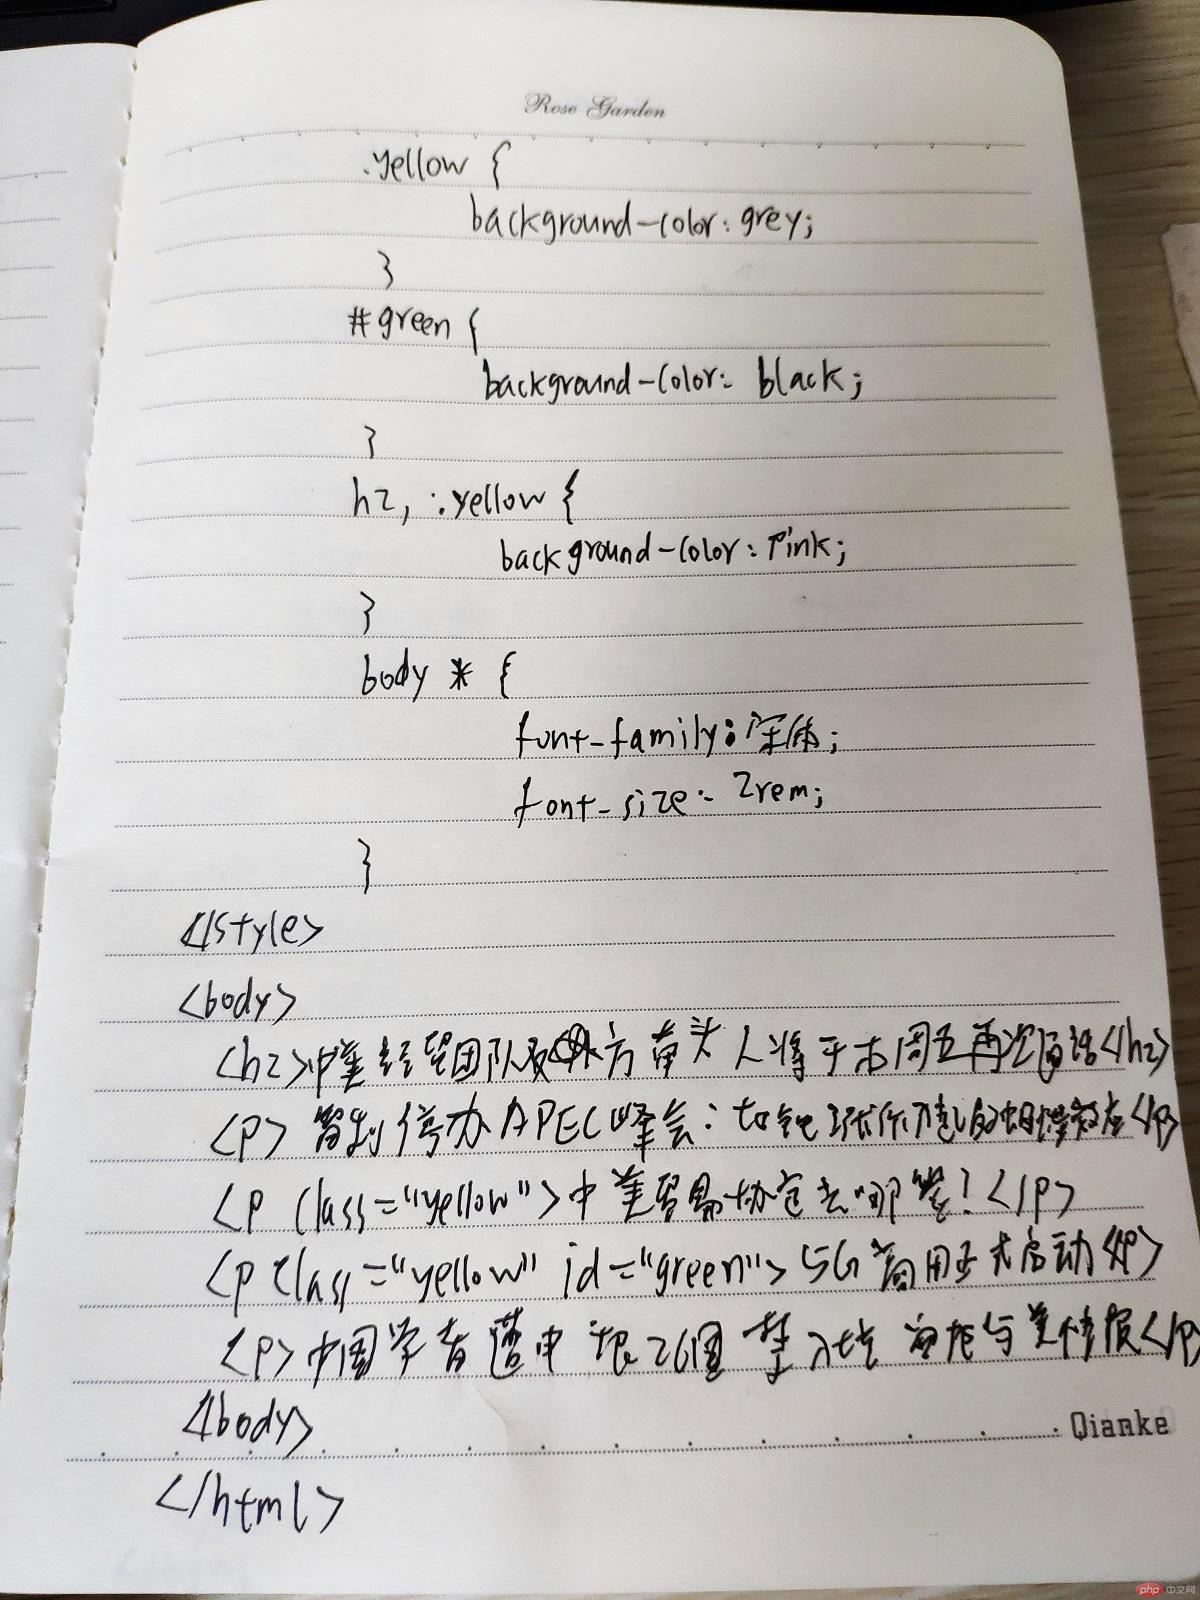 Rose Garden
.yellow {
background-color: grey;
}
#green {
background-color: black;
}
h2, .yellow {
background-color: pink;
}
body * {
font-family: 宋体;
font-size: 2rem;
}
</style>
<body>
<h2>中美经贸团队双方牵头人将于本周五再次通话</h2>
<p> 智利停办APEC峰会:</p>
<p class="yellow">中美贸易协定去哪签?</p>
<p class="yellow" id="green">5G商用正式启动</p>
<p>中国学者遭申根26国禁入</p>
</body>
Qianke
</html>
php 中文网